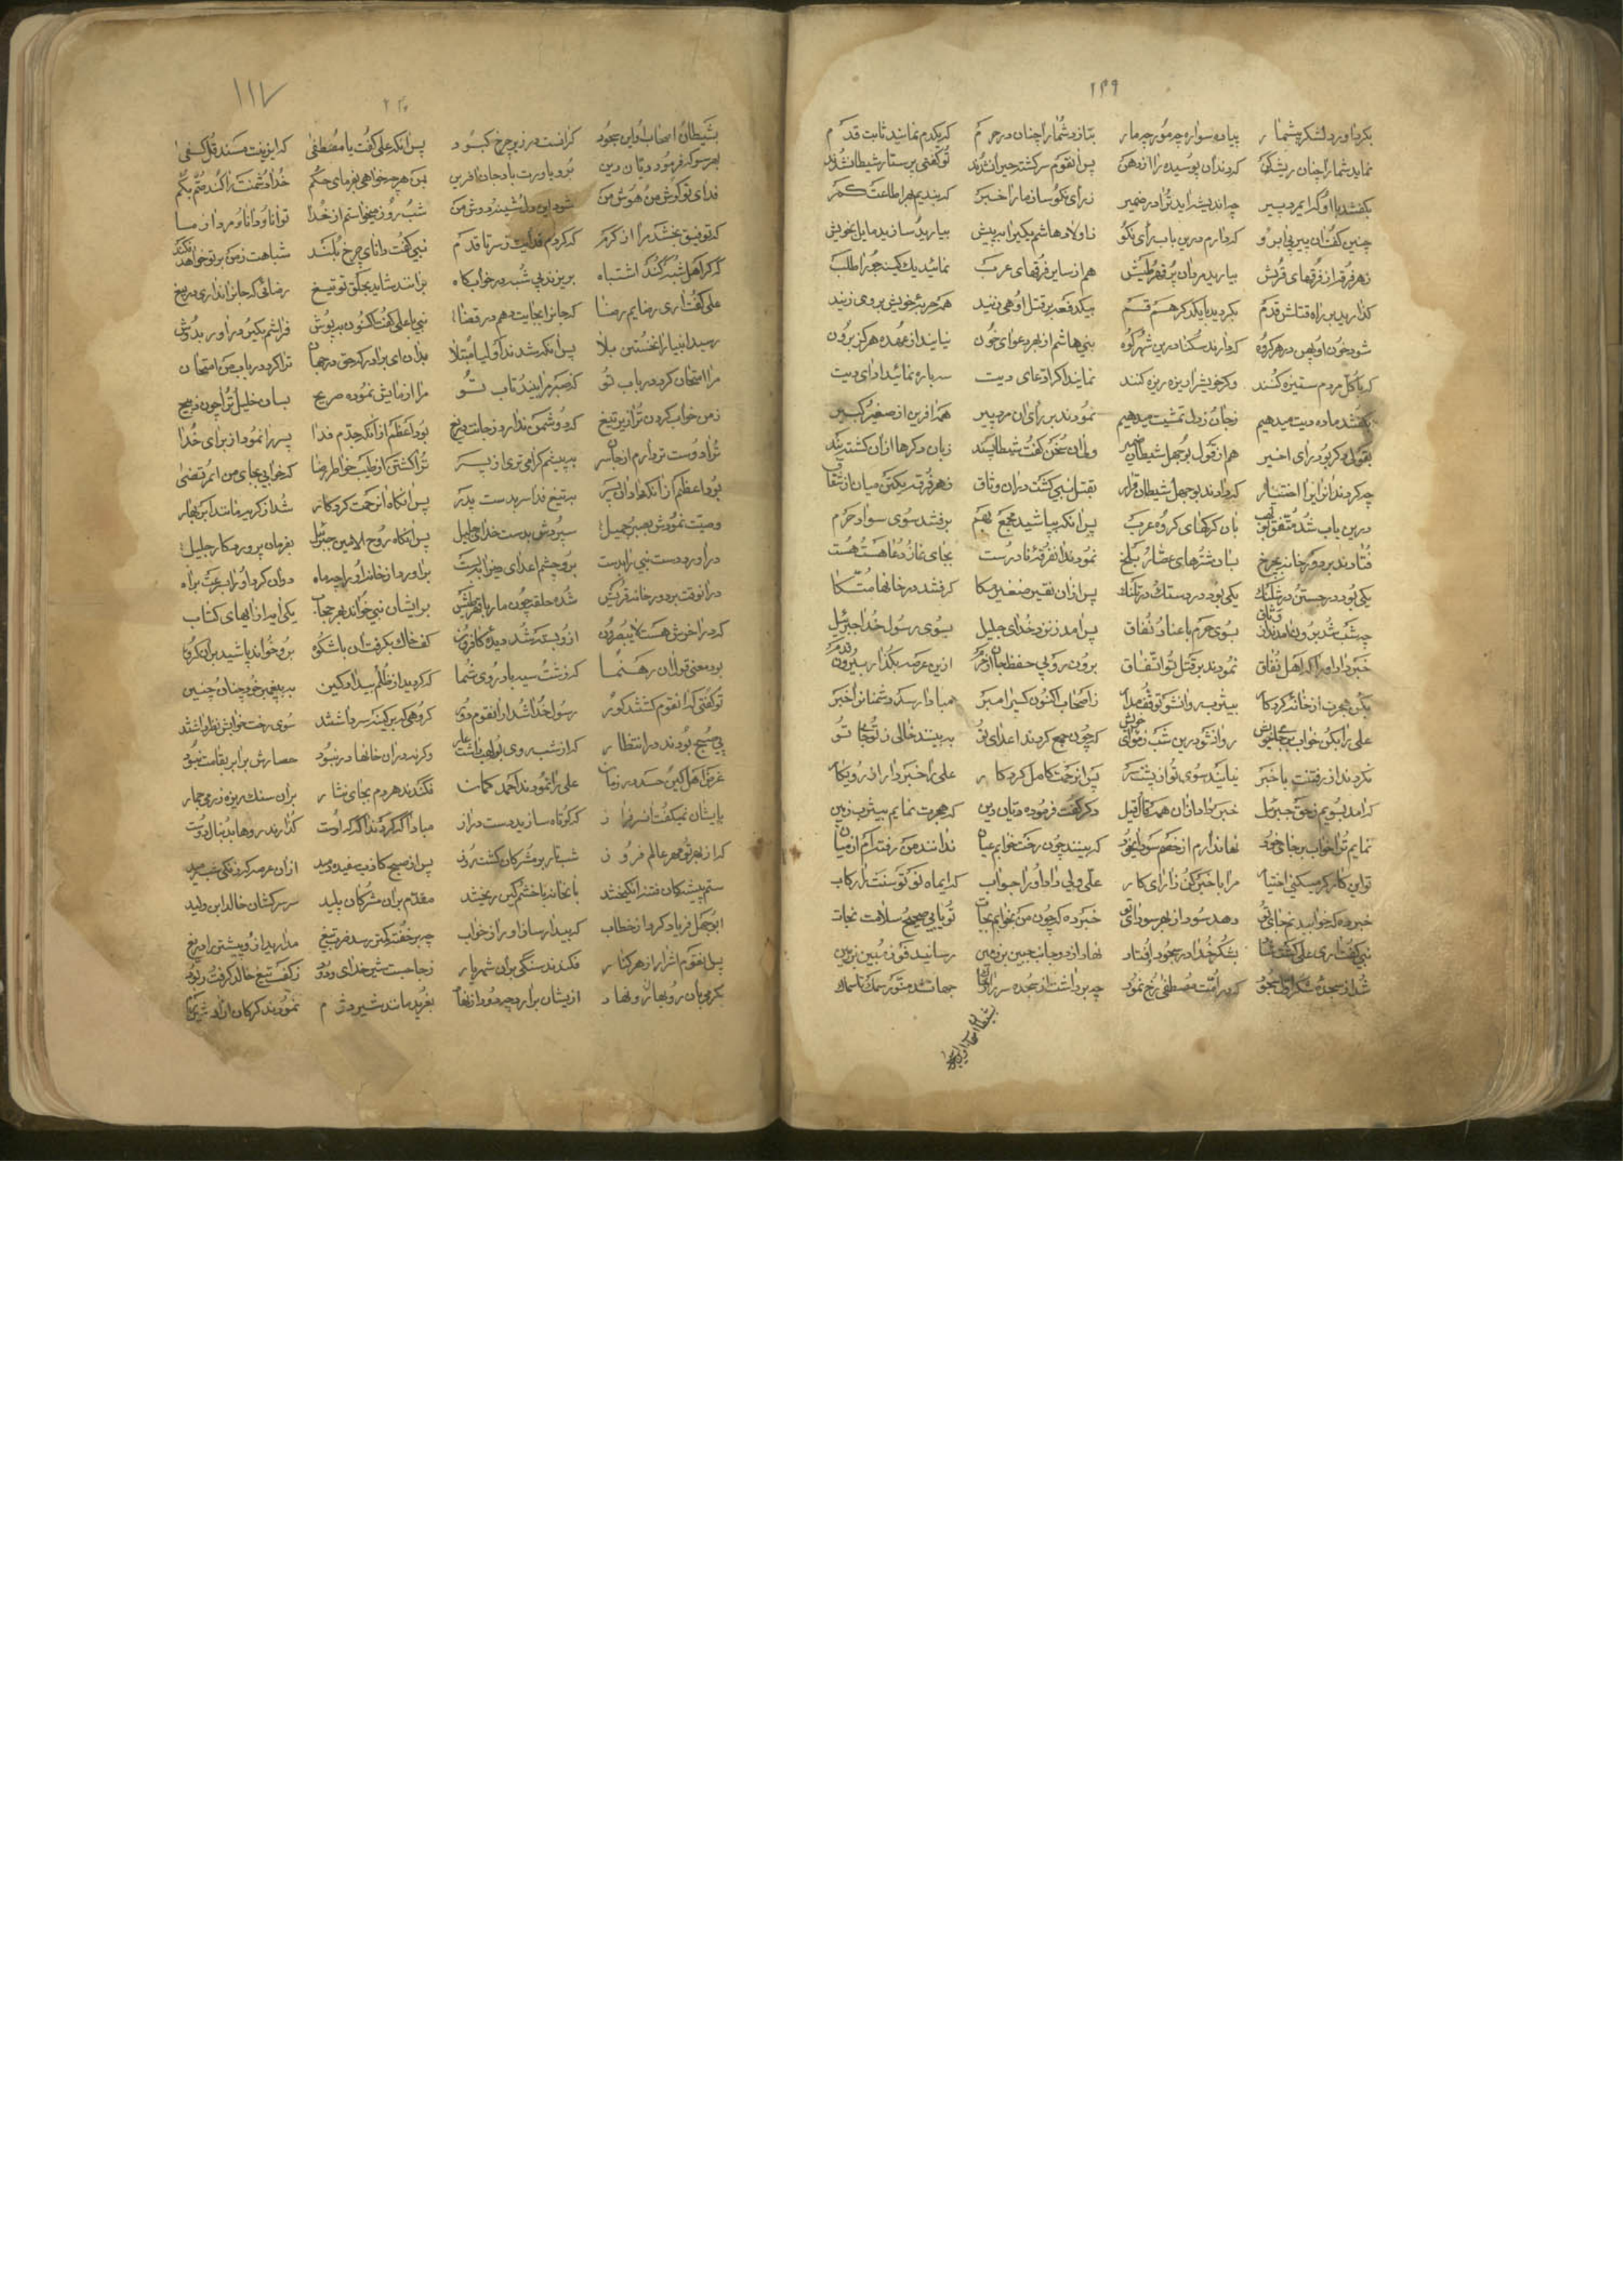 ۱۲۹
بگرد آورد لشکر پیشمار پیاده سواره چه مور چه مار بتازد شما را چنان در حرم که یکدم نمانید ثابت قدم
نماید شما را چنان ریشکن که دندان پوسیده را از دهن پس آنقوم سرکشته حیران شدند تو گفتی پرستار شیطان شدند
بگفتند با او که ای مرد پیر چه اندیشه آید ترا در ضمیر ز رای نکو ساز ما را خبر که بندیم بر طاعتت کمر
چنین گفت آن پیر بی آبرو که دارم درین باب رای نکو ز اولاد هاشم بگیرا به پیش بیارید سازید مایل بخویش
ز هر فرقه از فرقهای قریش بیارید مردان پر قهر و طیش هم از سایر فرقهای عرب نمائید یک یک کینه جو را طلب
گذارید بر راه قتلش قدم بگردید با یکدگر هم قسم بیکدفعه بر قتل او هی زنید همه حربهٔ خویش بر وی زنید
شود خون او پهن در هر گروه که دارند سکنا درین شهر و کوه بنی هاشم از بهر دعوای خون نیایند از عهده هرگز برون
که با کل مردم ستیزه کنند وگر خویش را ریزه ریزه کنند نمایند اگر ادعای دیت سراسر نمائید ادای دیت
بگفتند ماده دیت میدهیم ز جان و ز دل تمشیت میدهیم نمودند بر رای آن مرد پیر همه آفرین از صغیر و کبیر
بقولی دگر بود رای اخیر هم از قول بوجهل شیطان ضمیر ولی آن سخن گفت شیطان پسند زبان دگرها از آن گشته بند
چه کردند آن رای را اختیار که دادند بوجهل شیطان قرار بقتل نبی گشت در آن وثاق ز هر فرقه یکتن میان از نفاق
درین باب شد متفق بولهب بآن گرگهای گروه عرب پس آنکه بپاشید مجمع بهم برفتند سوی سواد حرم
فتادند بر دور خانه بچرخ بسان شترهای عصار بلخ نمودند آنفرقهٔ نادرست بجای نماز و دعا هست هست
یکی بود در جستن و در شلنگ یکی بود در دستک و در تلنگ پس از آن نفیر صفیر مکا گرفتند در خانها متکا
چه شب شد برون آمدند از وثاق بسوی حرم با عناد و نفاق پس آمد ز نزد خدای جلیل بسوی رسول خدا جبرئیل
خبر داد او را که اهل نفاق نمودند بر قتل تو اتفاق برون رو پی حفظ جان از حرم ازین عرصه بگذار بیرون قدم
بکن هجرت از خانه کردگار به یثرب روان شو توقف مدار ز اصحاب اکنون کسی را مبر مبادا رسد دشمنانرا خبر
علی را بکن خواب بر جای خویش روانشو درین شب ز مأوای خویش که چون جمع گردند اعدای تو به بینند خالی ز تو جای تو
نگردند از رفتنت با خبر نیایند سوی تو از پشت سر پس از رحمت کامل کردگار علی را خبر داد از آن رویکار
که آمد بسویم ز حق جبرئیل خبر داد از آن همه قال و قیل دگر گفت فرموده دیان دین که هجرت نمایم به یثرب زمین
نمایم ترا خواب بر جای خود نهان دارم از خصم سودای خود که بینند چون رخت خوابم عیان ندانند من رفته ام از میان
تو این کار گر میکنی اختیار مرا با خبر کن ز رای کار علی ولی داد او را جواب که ای ماه نو گوی سنت رکاب
خبر ده که خوابید بجای تو دهد سود از بهر سودای تو خبر ده که چون من بخوابم بجات تو یابی صحیح و سلامت نجات
نبی گفت آری علی گفت بشکر خدا در سجود اوفتاد نهاد از دو جانب جبین بر زمین رسانید فرق مبین بر زمین
شد از سجدهٔ شکر اول سجود که در امت مصطفی رخ نمود چه برداشت از سجده سر را جهان شد منور سمک تا سماک
بشیطان اصحاب او این سجود
۱۱۷
۲۳۰
بشیطان اصحاب او این سجود گرانست در زیر چرخ کبود پس آنکه علی گفت با مصطفی که ای زینت مسند قل کفی
بهر سو که فرمود دیان دین برو یاورت باد جان آفرین بمن هر چه خواهی بفرمای حکم خدا دشمنت را کند صم بکم
فدای تو گوش من هوش من شود این دل نشیند و دوش من شب و روز میخواستم از خدا توانا و دانا و مرد آزما
که توفیق بخشد مرا از کرم که گردم فدایت ز سر تا قدم نبی گفت دانای چرخ بلند شباهت ز من بر تو خواهد فکند
که گر اهل شبهه کنند اشتباه بریزند پی شبهه در خوابگاه برانند شاید بحلق تو تیغ رضائی که جانرا نداری دریغ
علی گفت آری رضایم رضا که جانرا بجایت دهم در قضا نبی با علی گفت اکنون بپوش فراشم بگیر و در آور بدوش
رسید انبیا را نخستین بلا پس آنکه شدند اولیا مبتلا بدان ای برادر که حق در جهان ترا کرد در باب من امتحان
مرا امتحان کرد در باب تو که صبر مرا بیند و تاب تو مرا آزمایش نموده صریح بسان خلیل و ترا چون ذبیح
ز من خواب کردن ترا زیر تیغ که دشمن ندارد ز جانت دریغ بود اعظم از آنکه جدم فدا پسر را نمود از برای خدا
ترا دوست تر دارم از جان سر به پیشم گرامی تری از پسر ترا کشتن از طیب خاطر رضا که خوابی بجای من امر قضی
بود اعظم از آنکه داد آن پسر به تیغ فدا سر بدست پدر پس آنگاه از رحمت کردگار شد از گریه مانند ابر بهار
وصیت نمودش بصبر جمیل سپردش بدست خدای جلیل پس آنگاه روح الامین جبرئیل بفرمان پروردگار جلیل
در آورد دست نبی را بدست برو چشم اعدای دین را ببست بر آورد از خانه او را چه ماه روان کرد او را بسرعت براه
در آنوقت بر دور خانه قریش شده حلقه چون مار با قهر و طیش بر ایشان نبی خواند بهر حجاب یکی آیه از آیهای کتاب
که در آخرش هست لا یبصرون ازو بسته شد دیدهٔ کافرون کف خاک بگرفت آن باشکوه برو خواند پاشید بر آن گروه
بود معنی قول آن رهنما که زشت سیه باد روی شما که کردید از ظلم بیداد و کین به پیغمبر خود چنان و چنین
تو گفتی که آنقوم گشتند کور رسول خدا شد از آنقوم دور گروهی کزین کینه سر داشتند سوی رخت خوابش نظر داشتند
پی صبح بودند در انتظار که از شب روی بولهب داشت عار وگرنه در آن خانها در نبود حصارش برابر بقامت نبود
غرض اهل کین حسد در زمان علی را نمودند احمد گمان فکندند هر دم بجای نثار بر آن سنک ریزه ز رمی جمار
بایشان نمیگفت آنسرفراز که کوتاه سازید دست دراز مبادا که گردند آگه که اوست گذارند روها بدنبال دوست
که از بهر تو مهر عالم فروز شب تار بر مشرکان گشت روز پس از صبح کاذب سفیدی دمید از آن عرصه گرد فلک شب رمید
ستم پیشگان فتنه انگیختند بآنخانه با خشم و کین ریختند مقدم بر آن مشرکان پلید سر سرکشان خالد ابن ولید
ابوجهل فریاد کرد از خطاب که بیدار ساز او را از خواب چه بر خفته کمتر رسد ضرب تیغ مدارید ازو پیشتر را دریغ
پس آنقوم اشرار از هر کنار فکندند سنگی بر آن شهریار ز جا جست شیر خدای ودود ز کف تیغ خالد گرفت و ربود
بگرمی بآن روبهان رو نهاد ازیشان برآورد چه دود از نهاد بغرید مانند شیر دژم نمودند گرگان از آن شیر رم